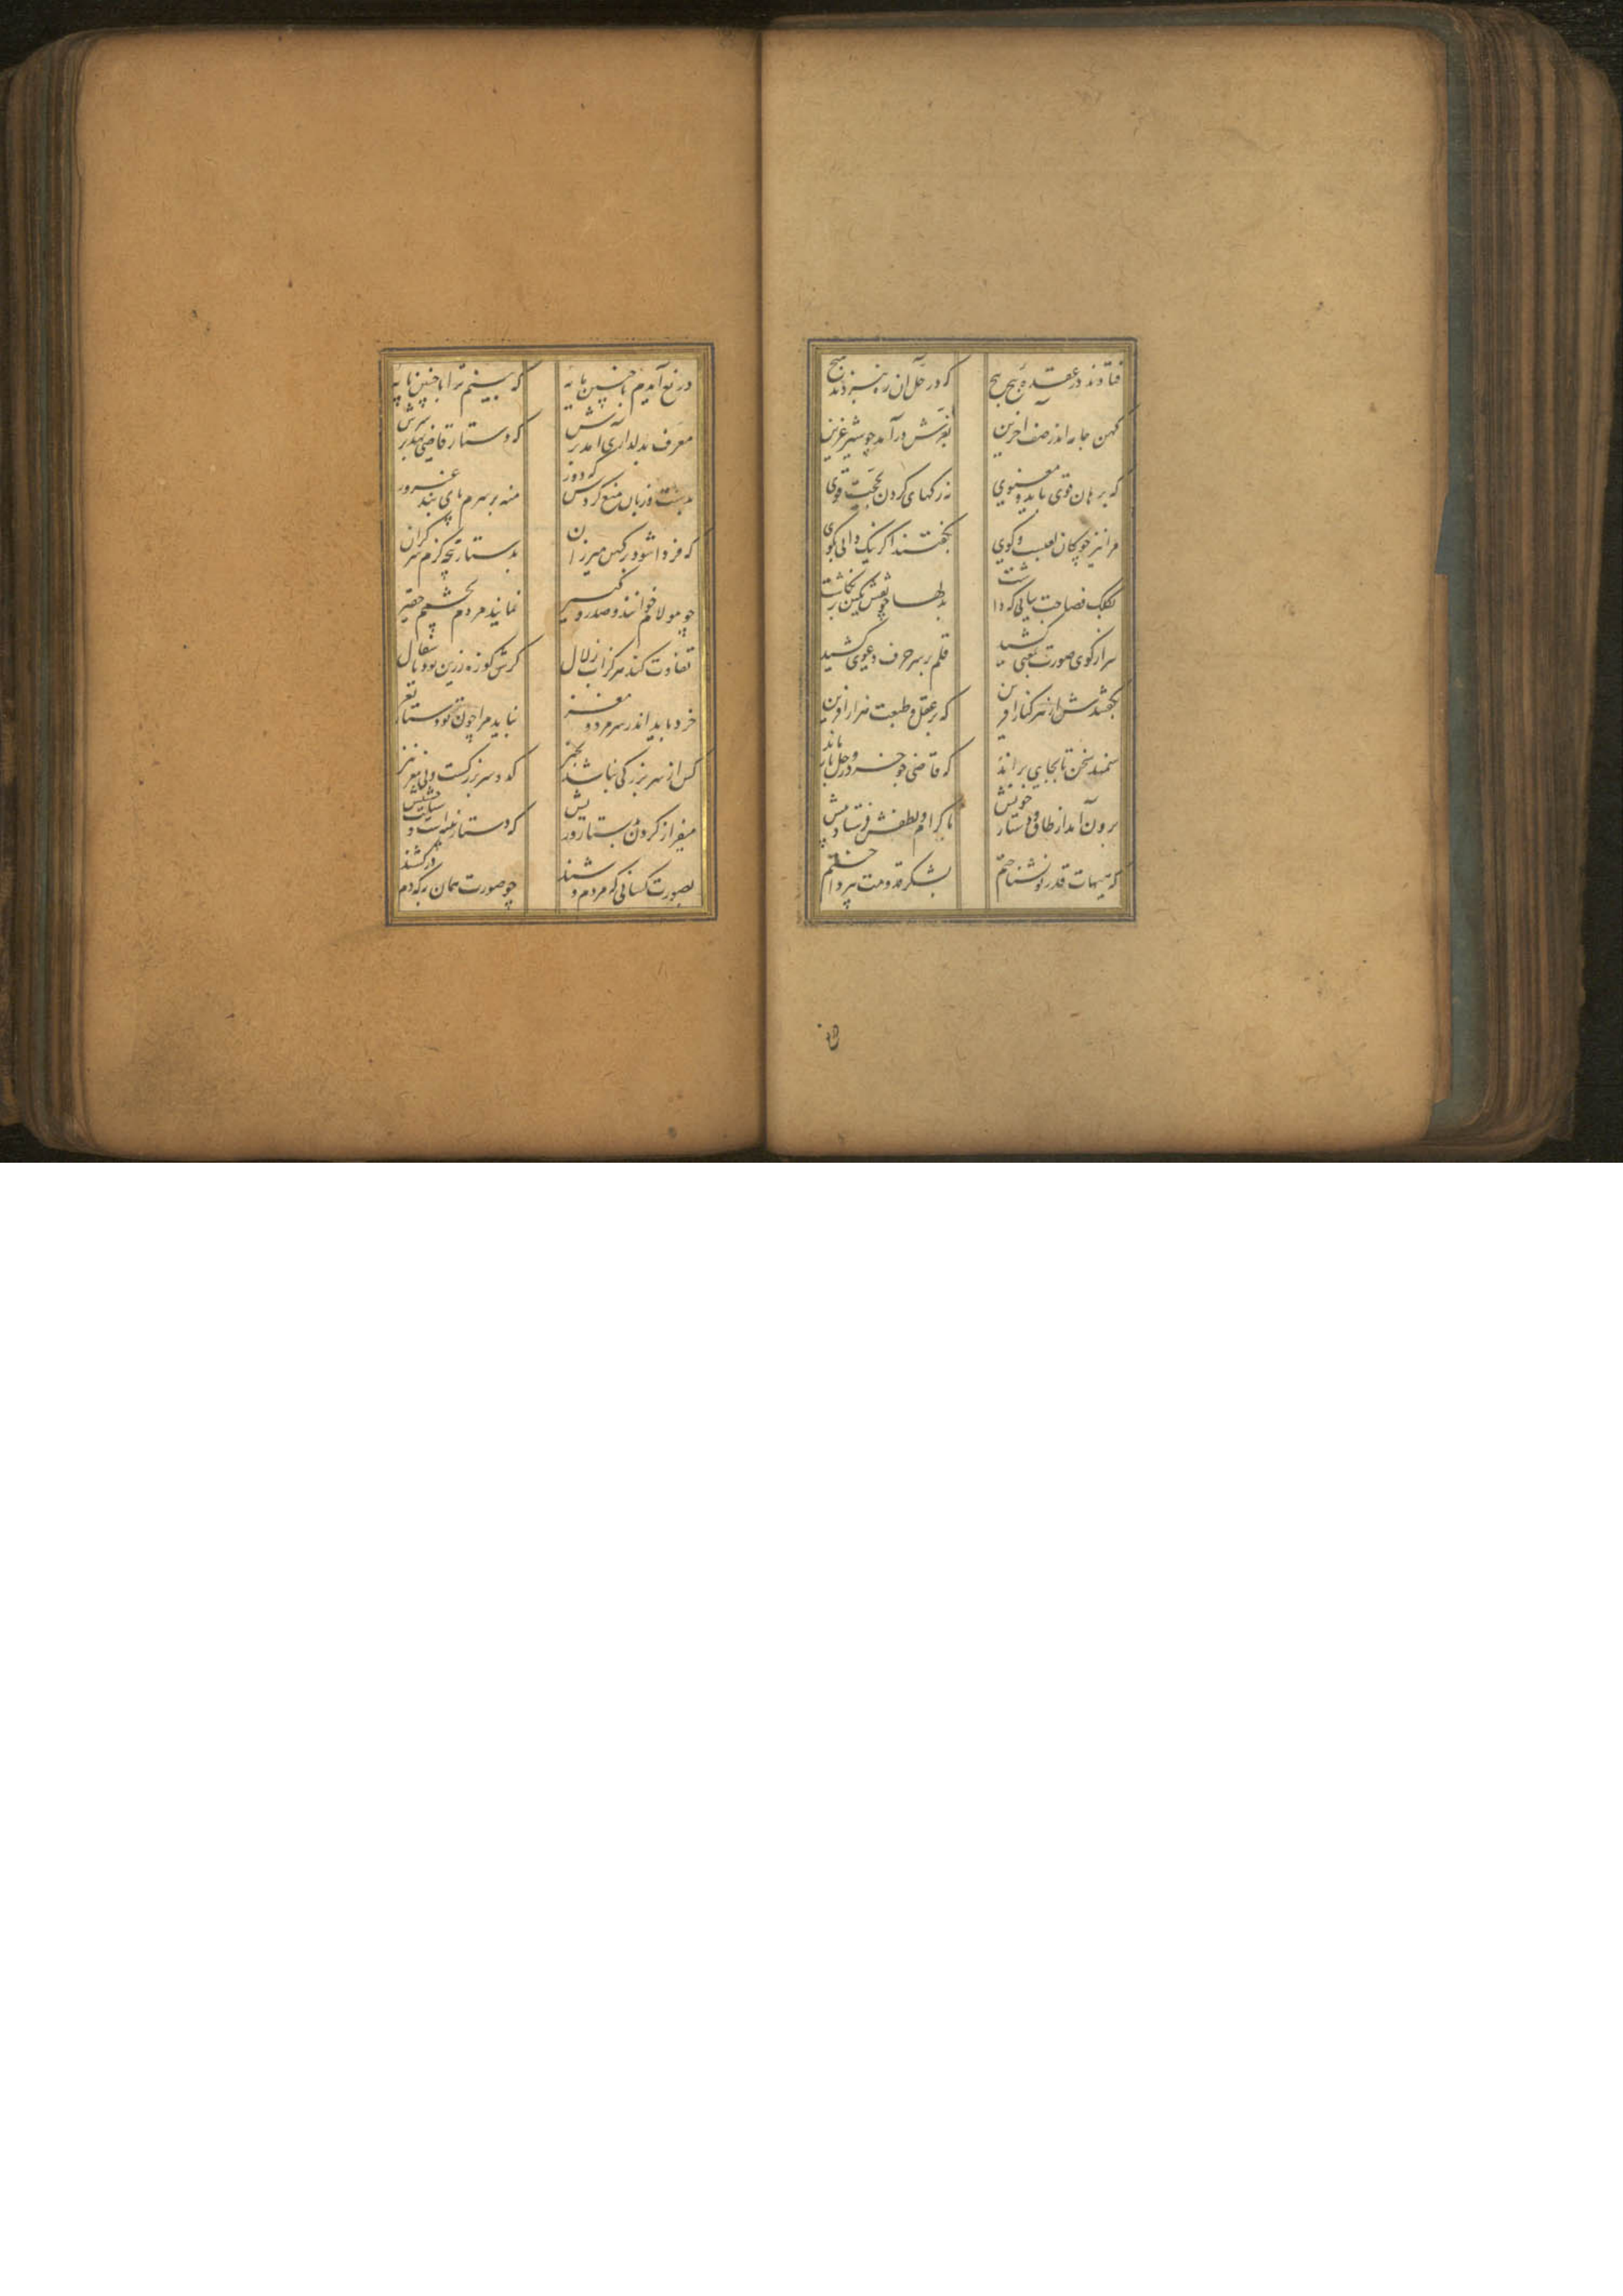 فتادند در عقده پیچ پیچ که در حل آن ره نبردند هیچ
کهن جامه اندر صف آخرین بغرش درآمد چو شیر عرین
که برهان قوی باید و معنوی نه رکهای کردن بحجت قوی
مرا نیز چوکان لعبست و کوی بکفتند اکر نیک دانی بکوی
بکلک فصاحت بیانی که داشت بدلها چو نقش نکین برنکاشت
سر از کوی صورت بمعنی کشید قلم بر سر حرف دعوی کشید
بکفتندش از هر کنار آفرین که بر عقل و طبعت هزار آفرین
سمند سخن تا بجایی براند که قاضی چو خر در وحل بازماند
برون آمد از طاق و دستار خویش باکرام و لطفش فرستاد پیش
که هیهات قدر تو نشناختم بشکر قدومت نپرداختم
دریغ آیدم با چنین مایه که بینم ترا با چنین پایه
معرف بدلداری آمد برش که دستار قاضی نهد بر سرش
بدست و زبان منع کردش که دور منه بر سرم پای بند غرور
که فردا شود بر کهن میزران بدستار پنجه کزم سر کران
چو مولام خوانند و صدر کبیر نمایند مردم بچشمم حقیر
تفاوت کند هرکز آب زلال کرش کوزه زرین بود یا سفال
خرد باید اندر سر مرد و مغز نباید مرا چون تو دستار نغز
کس از سر بزرکی نباشد بچیز کدو سر بزرکست و بی مغز نیز
میفراز کردن بدستار و ریش که دستار پنبه است و سبلت حشیش
بصورت کسانی که مردم وشند چو صورت همان به که دم درکشند